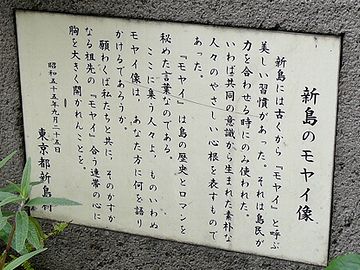 新島のモヤイ像
新島には古くから「モヤイ」と呼ぶ
美しい習慣があった。それは島民が
力を合わせる時にのみ使われた。
いわば共同の意識から生まれた素朴な
人々のやさしい心根を表すもので
あった。
「モヤイ」は島の歴史とロマンを
秘めた言葉なのである。
ここに集う人々よ、ものいわぬ
モヤイ像は、あなた方に何を語り
かけるであろうか。
願わくば私たちと共に、そのかすか
なる祖先の「モヤイ」合う連帯の心に
胸を大きく開かれんことを。
昭和五十五年九月二十五日
東京都新島